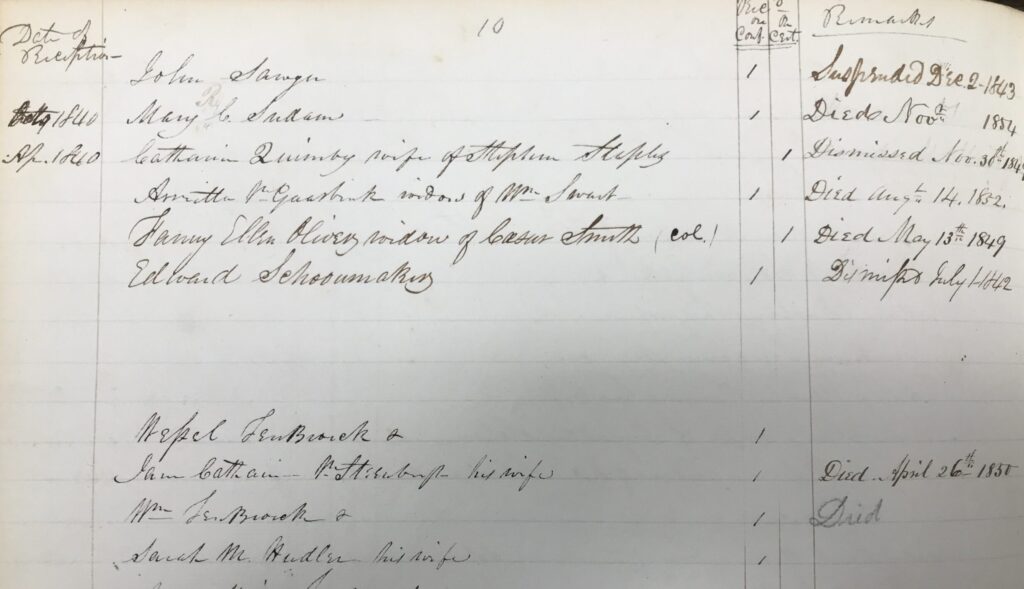 10
Date of Reception
Rec on Conf.
on Cert.
Remarks
John Sawyer 1 Suspended Dec. 2 1843
1840 Mary C Sudam 1 Died Nov. 1854
Ap. 1840 Catharin Quimby wife of Stephen 1 Dismissed Nov. 30th
Vn Gaasbeek widow of Wm Swart 1 Died Augt 14. 1852.
Fanny Ellen Oliver widow of Caesar Smith (col.) 1 Died May 13th 1849
Edward Schoonmaker 1 Dismissed July 1 1842
Wessel TenBroeck & 1
Jane Catharin Vn Steenburgh his wife 1 Died April 26th 1850
Wm TenBroeck & 1 Died
Sarah M. Hudler his wife 1